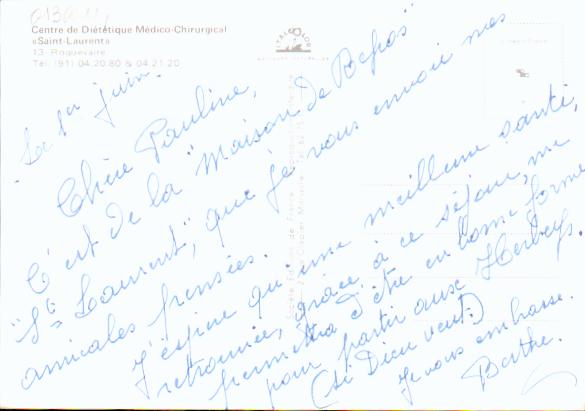 Centre de Diététique Médico-Chirurgical
«Saint-Laurent»
13 - Roquevaire
Tél. (91) 04.20.80 & 04.21.20
ITALCOLOR
Le 1er juin.
Chère Pauline,
C'est de la "Maison de Repos
St Laurent", que je vous envoie mes
amicales pensées.
J'espère qu'une meilleure santé,
retrouvée, grâce à ce séjour, me
permettra d'être en bonne forme
pour partir aux Herbeys.
(si Dieu veut!)
Je vous embrasse.
Berthe.